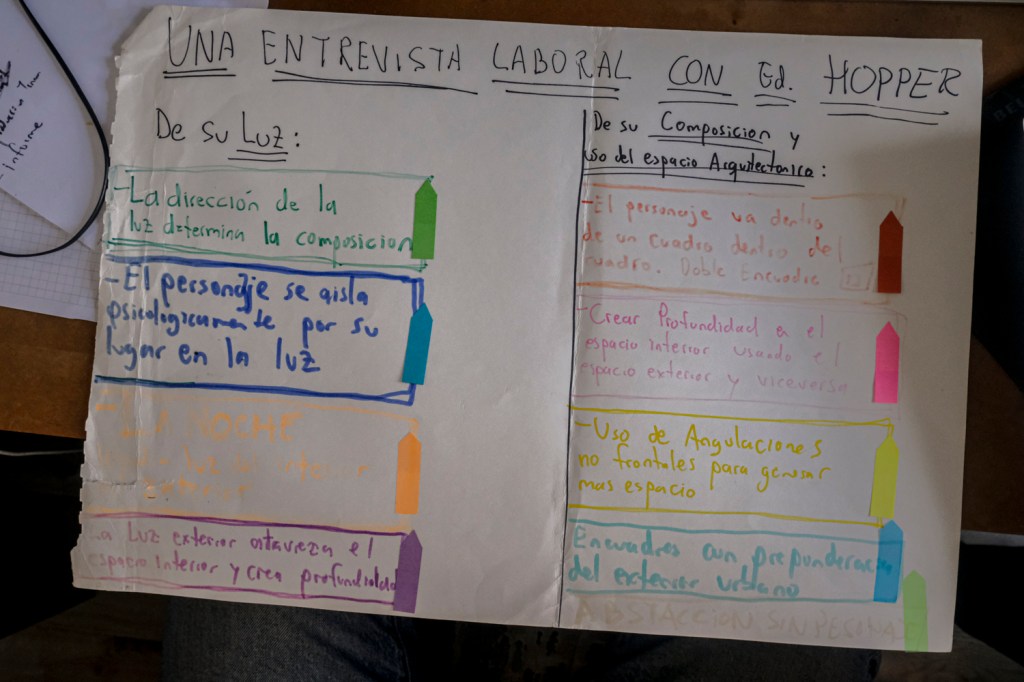 UNA ENTREVISTA LABORAL CON Ed. HOPPER
De su Luz:
-La dirección de la
luz determina la composicion
-El personaje se aisla
psicologicamente por su
lugar en la luz
- LA NOCHE
luz interior
exterior
La Luz exterior atravieza el
espacio interior y crea profundidad
De su Composicion y
uso del espacio Arquitectonico:
-El personaje va dentro
de un cuadro dentro del
cuadro. Doble Encuadre
-Crear Profundidad en el
espacio interior usando el
espacio exterior y viceversa
-Uso de Angulaciones
no frontales para generar
mas espacio
Encuadres con
del exterior urbano
ABSTACCION SIN
informe